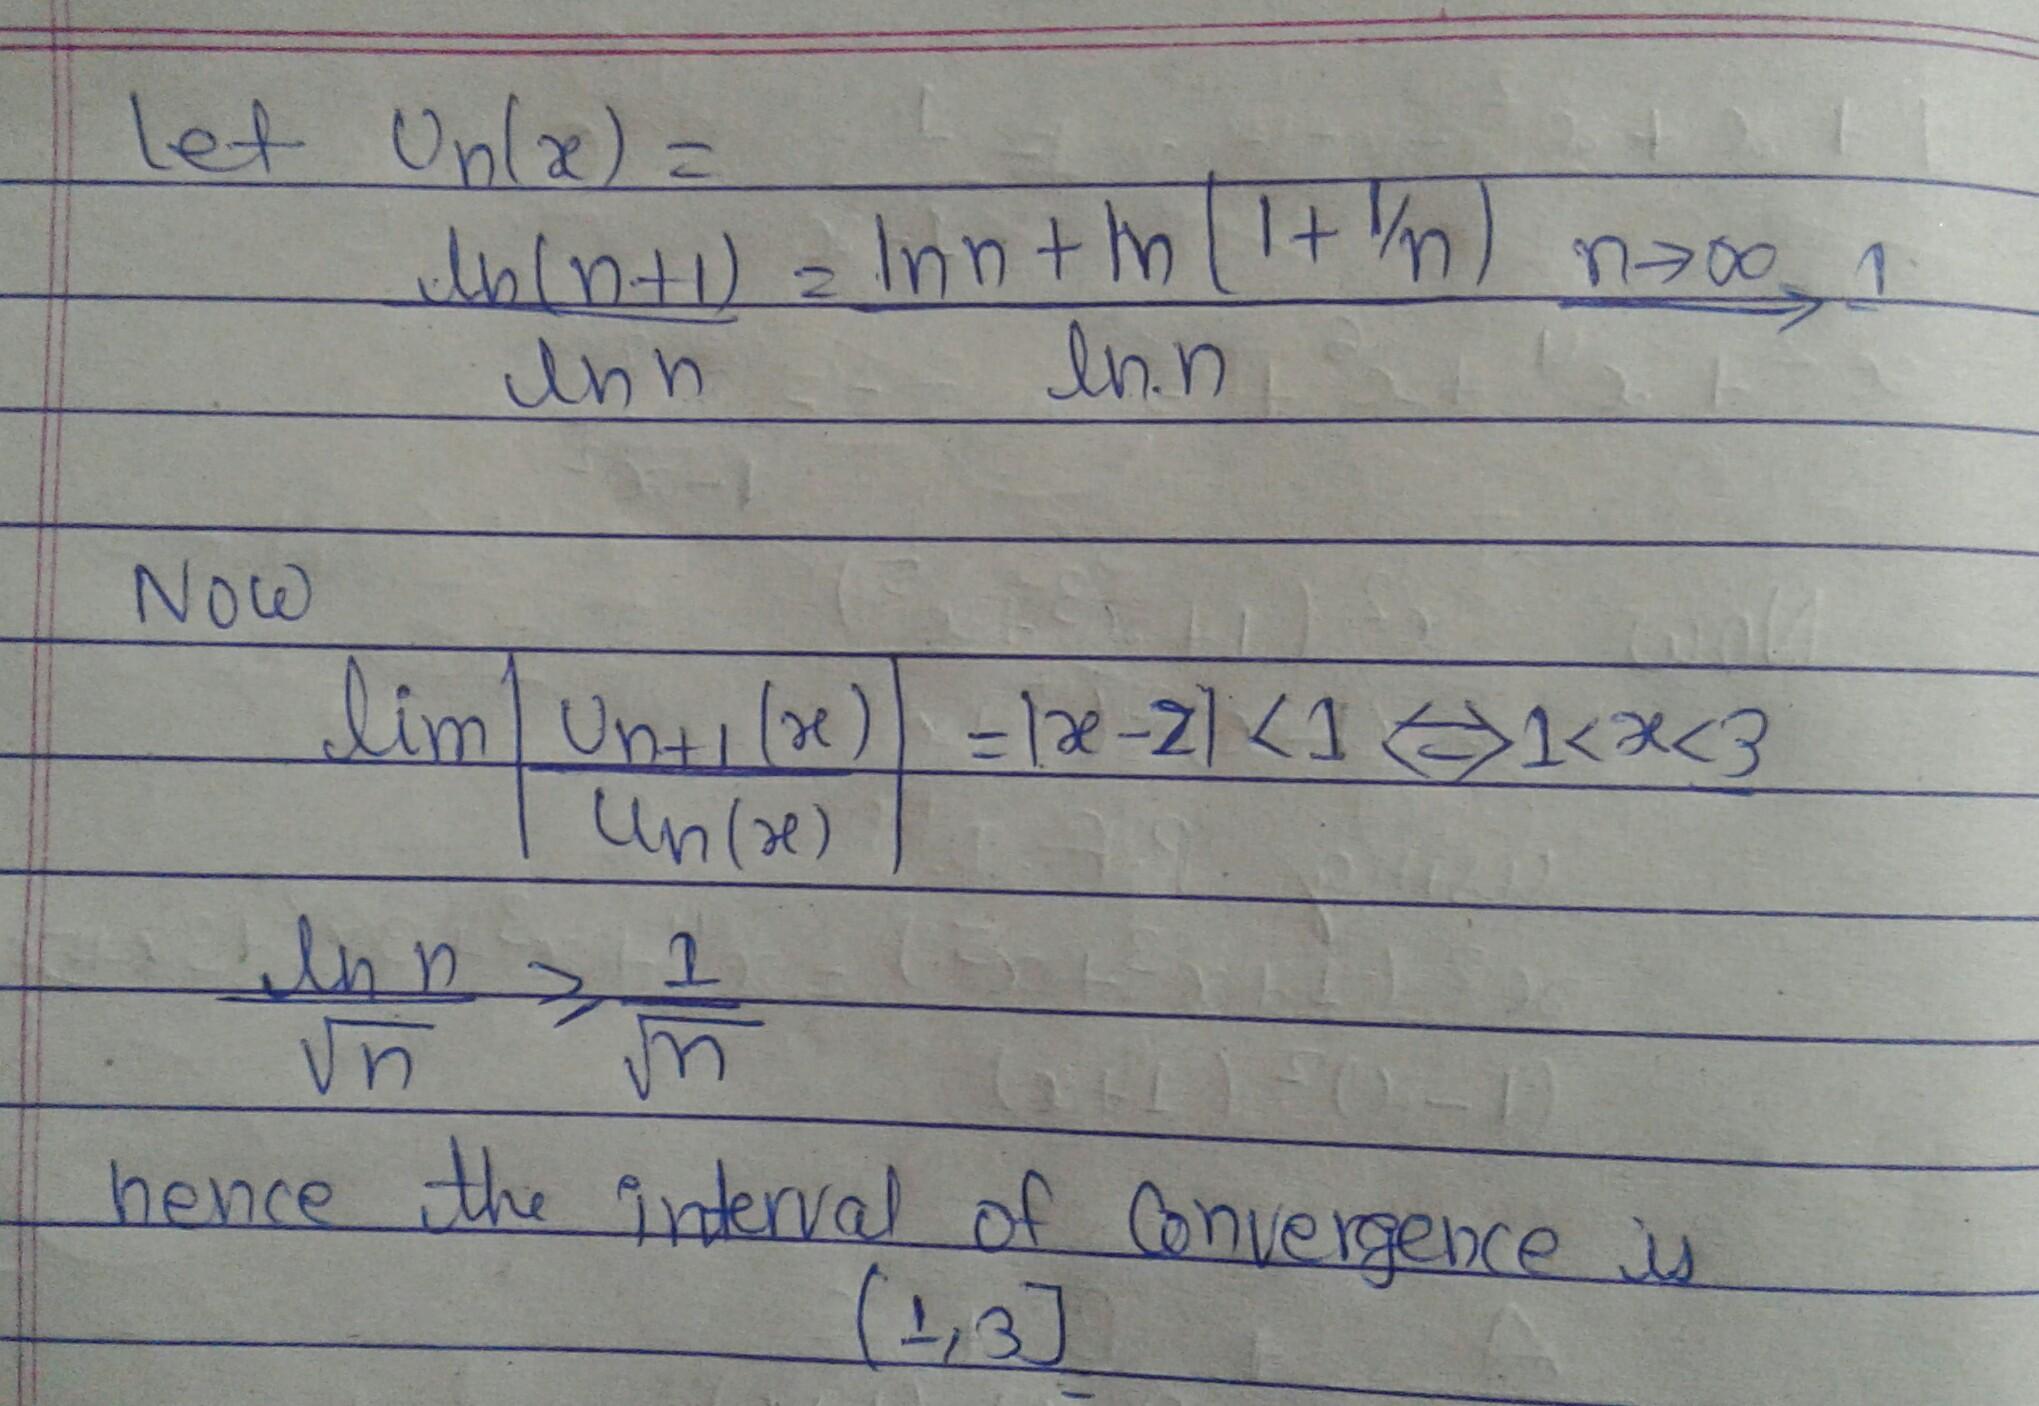 Let Un(x) =
ln(n+1) / ln n = ln n + ln (1 + 1/n) / ln n n→∞ → 1
Now
lim | Un+1(x) / Un(x) | = |x-2| < 1 ⇔ 1<x<3
ln n / √n ≥ 1 / √n
hence the interval of Convergence is
(1,3]